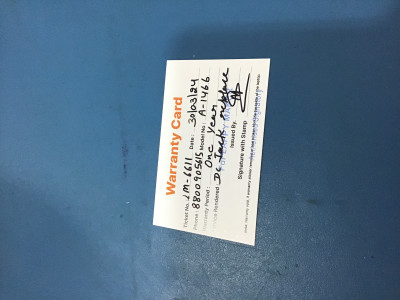 Warranty Card
Ticket No. LM-6611 Date: 30/03/24
Phone: 8800905615 Model No: A-1466
Warranty Period: One year
Service Rendered DC Jack replace
Issued By:
Signature with Stamp